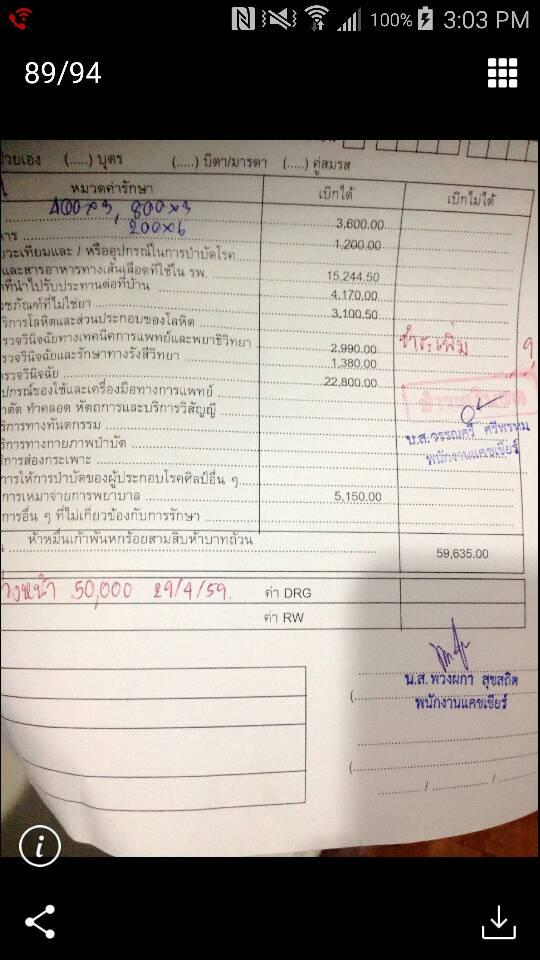 100% 3:03 PM
89/94
(.....) บุตร (.....) บิดา/มารดา (.....) คู่สมรส
หมวดค่ารักษา เบิกได้ เบิกไม่ได้
400×3, 800×3 3,600.00
200×6 1,200.00
และ / หรืออุปกรณ์ในการบำบัดโรค
และสารอาหารทางเส้นเลือดที่ใช้ใน รพ. 15,244.50
ที่นำไปรับประทานต่อที่บ้าน 4,170.00
ชภัณฑ์ที่ไม่ใช่ยา 3,100.50
ริการโลหิตและส่วนประกอบของโลหิต
รวจวินิจฉัยทางเทคนิคการแพทย์และพยาธิวิทยา 2,990.00 ชำระเพิ่ม 9,
รวจวินิจฉัยและรักษาทางรังสีวิทยา 1,380.00
รวจวินิจฉัย 22,800.00
ปกรณ์ของใช้และเครื่องมือทางการแพทย์
าตัด ทำคลอด หัตถการและบริการวิสัญญี
ริการทางทันตกรรม
ริการทางกายภาพบำบัด น.ส.วรรณศรี ศรีพรหม
ริการส่องกระเพาะ พนักงานแคชเชียร์
การให้การบำบัดของผู้ประกอบโรคศิลป์อื่น ๆ
การเหมาจ่ายการพยาบาล 5,150.00
การอื่น ๆ ที่ไม่เกี่ยวข้องกับการรักษา
ห้าหมื่นเก้าพันหกร้อยสามสิบห้าบาทถ้วน 59,635.00
วงหน้า 50,000 29/4/59. ค่า DRG
ค่า RW
น.ส.พวงผกา สุขสถิต
พนักงานแคชเชียร์